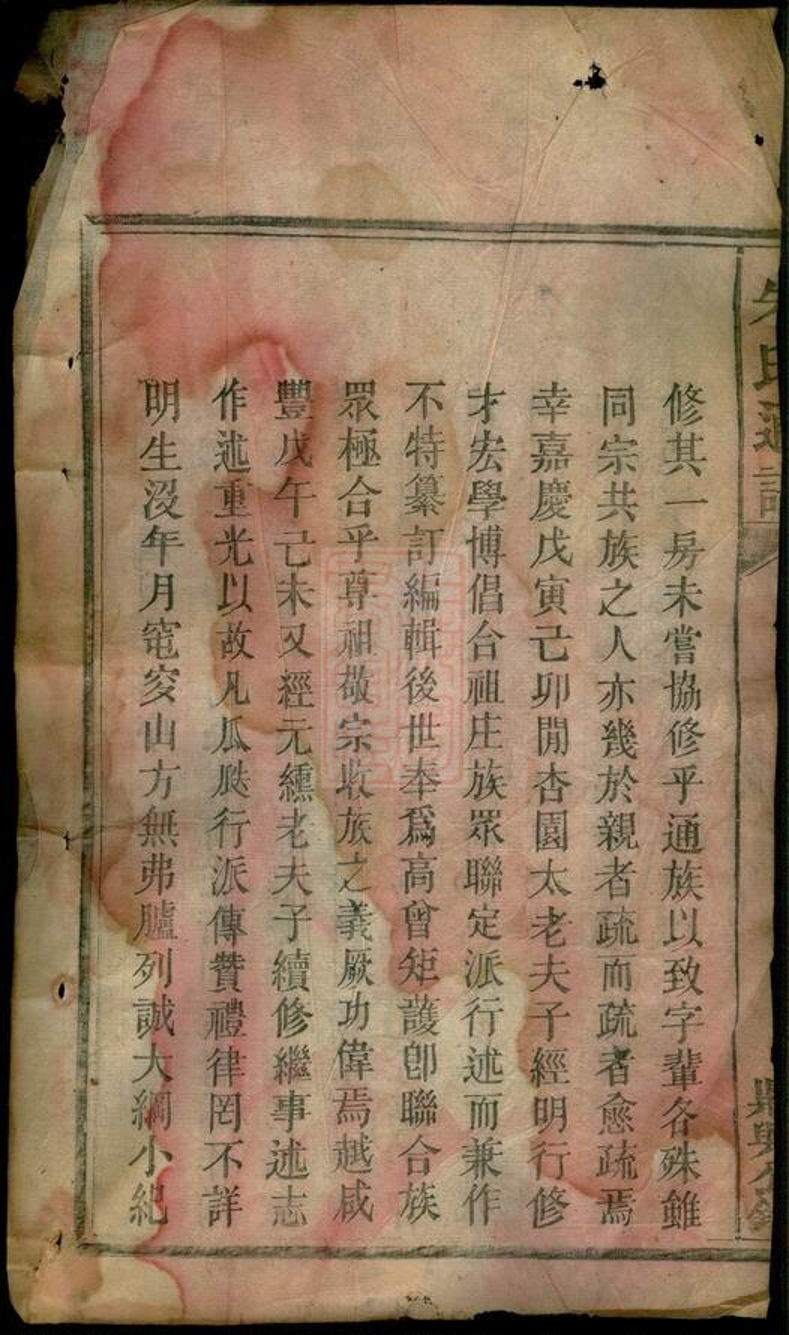 氏通譜
修其一房未嘗協修乎通族以致字輩各殊雖
同宗共族之人亦幾於親者疏而疏者愈疏焉
幸嘉慶戊寅己卯閒杏園太老夫子經明行修
才宏學博倡合祖庄族眾聯定派行述而兼作
不特纂訂編輯後世奉爲高曾矩䕶卽聯合族
眾極合乎尊祖敬宗收族之義厥功偉焉越咸
豐戊午己未又經元纁老夫子續修繼事述志
作述重光以故凡瓜瓞行派傳贊禮律罔不詳
明生沒年月窀穸山方無弗臚列誠大綱小紀